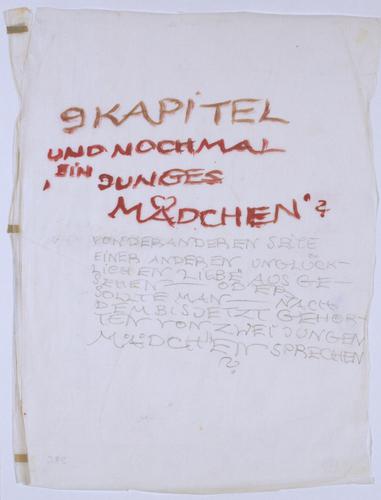 9 KAPITEL
UND NOCHMAL
'EIN JUNGES
MÄDCHEN'?
VON DER ANDEREN SEITE
EINER ANDEREN UNGLÜCK-
LICHEN LIEBE AUS GE-
SEHEN — ODER
SOLLTE MAN — NACH
DEM BIS JETZT GEHÖR-
TEN VON ZWEI JUNGEN
MÄDCHEN SPRECHEN
?